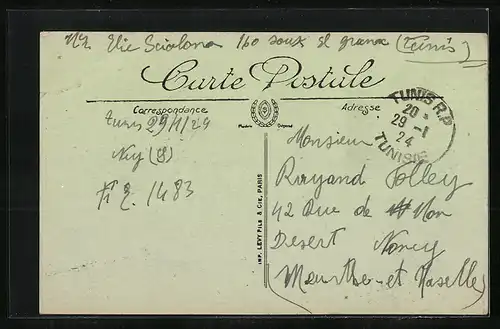 Elie Scialom 160 soux el grana (Tunis)
Carte Postale
Correspondance
Adresse
Modèle Déposé
TUNIS R.P
20
29 - 1
24
TUNISIE
Tunis 29/1/24
Ney (8)
1483
Monsieur
Jolley
42 Rue de Mon
Desert Nancy
Meurthe-et Moselle
IMP. LEVY FILS & CIE, PARIS